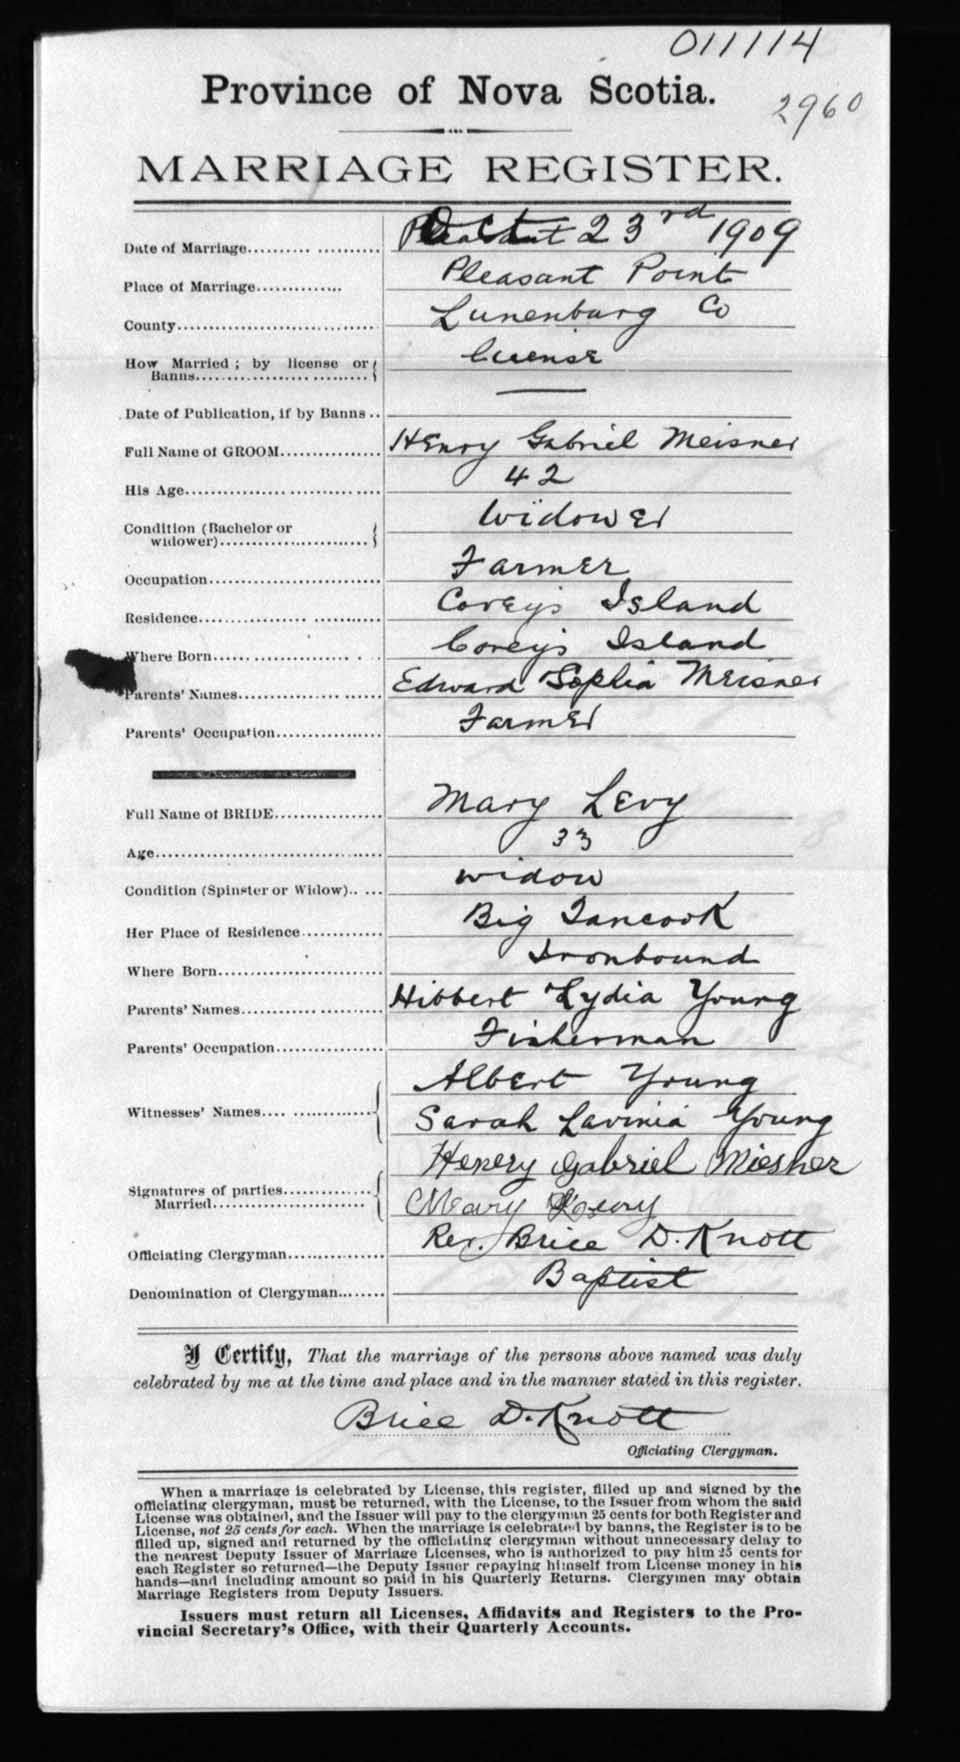 011114
Province of Nova Scotia.
2960
MARRIAGE REGISTER.
Date of Marriage........ Oct 23rd 1909
Place of Marriage........ Pleasant Point
County........ Lunenburg Co
How Married; by license or
Banns........ License
Date of Publication, if by Banns.. —
Full Name of GROOM........ Henry Gabriel Meisner
His Age........ 42
Condition (Bachelor or
widower)........ Widower
Occupation........ Farmer
Residence........ Covey's Island
Where Born........ Covey's Island
Parents' Names........ Edward Sophia Meisner
Parents' Occupation........ Farmer
Full Name of BRIDE........ Mary Levy
Age........ 33
Condition (Spinster or Widow)..... widow
Her Place of Residence........ Big Tancook
Where Born........ Ironbound
Parents' Names........ Hibbert Lydia Young
Parents' Occupation........ Fisherman
Witnesses' Names........ Albert Young
Sarah Lavinia Young
Signatures of parties Married........ Henery Gabriel Miesner
Mary Levy
Officiating Clergyman........ Rev. Brice D. Knott
Denomination of Clergyman........ Baptist
I Certify, That the marriage of the persons above named was duly
celebrated by me at the time and place and in the manner stated in this register.
Brice D. Knott
Officiating Clergyman.
When a marriage is celebrated by License, this register, filled up and signed by the
officiating clergyman, must be returned, with the License, to the Issuer from whom the said
License was obtained, and the Issuer will pay to the clergyman 25 cents for both Register and
License, not 25 cents for each. When the marriage is celebrated by banns, the Register is to be
filled up, signed and returned by the officiating clergyman without unnecessary delay to
the nearest Deputy Issuer of Marriage Licenses, who is authorized to pay him 25 cents for
each Register so returned—the Deputy Issuer repaying himself from License money in his
hands—and including amount so paid in his Quarterly Returns. Clergymen may obtain
Marriage Registers from Deputy Issuers.
Issuers must return all Licenses, Affidavits and Registers to the Pro-
vincial Secretary's Office, with their Quarterly Accounts.